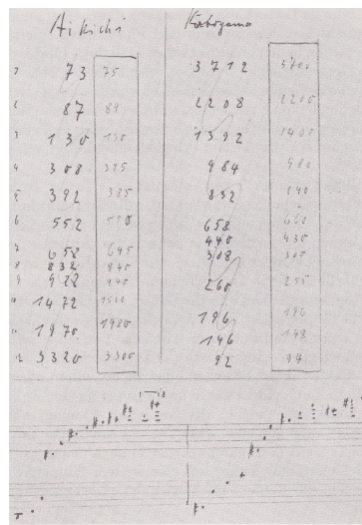 Aikichi
73 75
87 89
130 130
308 315
392 385
552 550
658 645
832 840
928 940
1472 1500
1970 1900
3320 3300
3712 3700
2208 2200
1392 1400
984 980
832 840
658 660
440 430
308 300
260 255
196 190
146 148
92 94